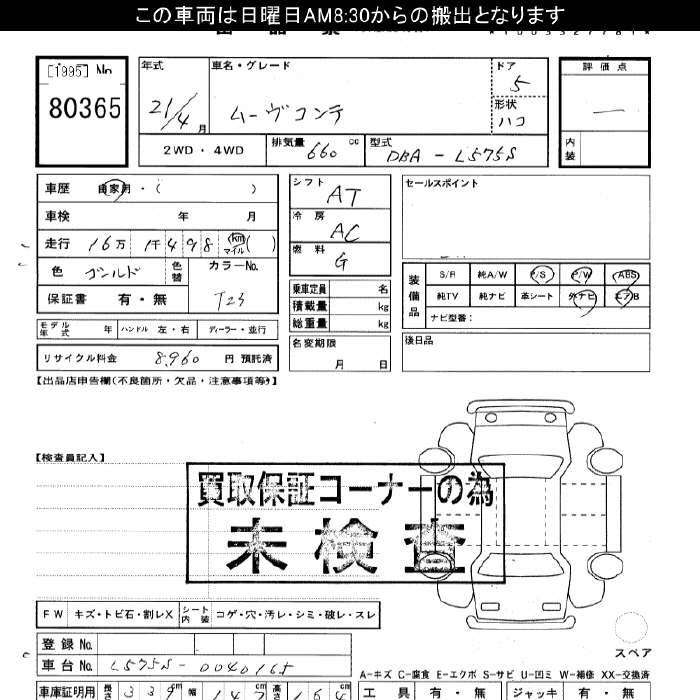 この車両は日曜日AM8:30からの搬出となります
[1995] No
80365
年式 21/4 月
車名・グレード ムーヴコンテ
ドア 5
形状 ハコ
評価点 —
内装
2WD・4WD
排気量 660 cc
型式 DBA - L575S
車歴 自家用・( )
車検 年 月
走行 16万 1千498 km マイル ( )
色 ゴールド
色替
カラーNo. T23
保証書 有・無
モデル年式 年
ハンドル 左・右
ディーラー・並行
リサイクル料金 8,960 円 預託済
シフト AT
冷房 AC
燃料 G
乗車定員 名
積載量 kg
総重量 kg
名変期限 月 日
セールスポイント
装備品
S/R 純A/W P/S P/W ABS
純TV 純ナビ 革シート 外ナビ エアB
ナビ型番:
後日品
【出品店申告欄(不良箇所・欠品・注意事項等)】
【検査員記入】
買取保証コーナーの為
未検査
FW キズ・トビ石・割レX
シート内装 コゲ・穴・汚レ・シミ・破レ・スレ
スペア
登録No.
車台No. L575S-0040165
A-キズ C-腐食 E-エクボ S-サビ U-凹ミ W-補修 XX-交換済
車庫証明用 長さ 339 cm 幅 147 高さ 164 cm
工具 有・無
ジャッキ 有・無